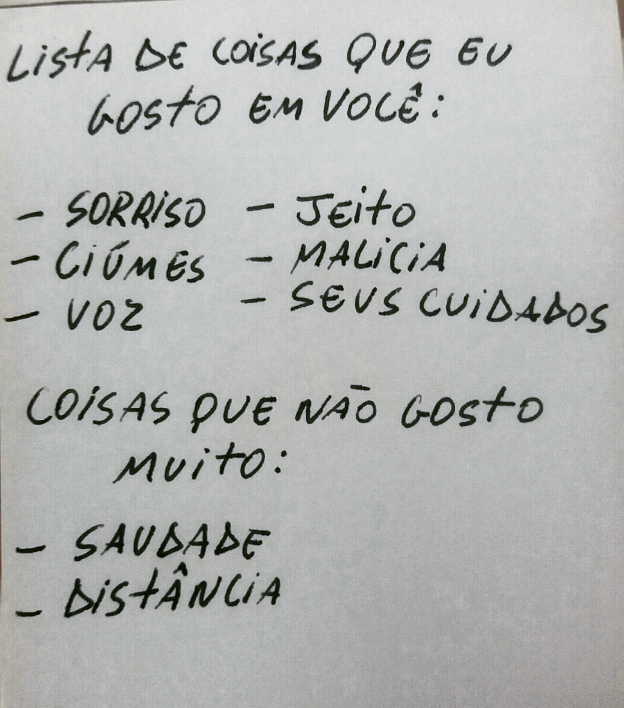 LISTA DE COISAS QUE EU
GOSTO EM VOCÊ:
- SORRISO - JEITO
- CIÚMES - MALICIA
- VOZ - SEUS CUIDADOS
COISAS QUE NÃO GOSTO
MUITO:
- SAUDADE
- DISTÂNCIA